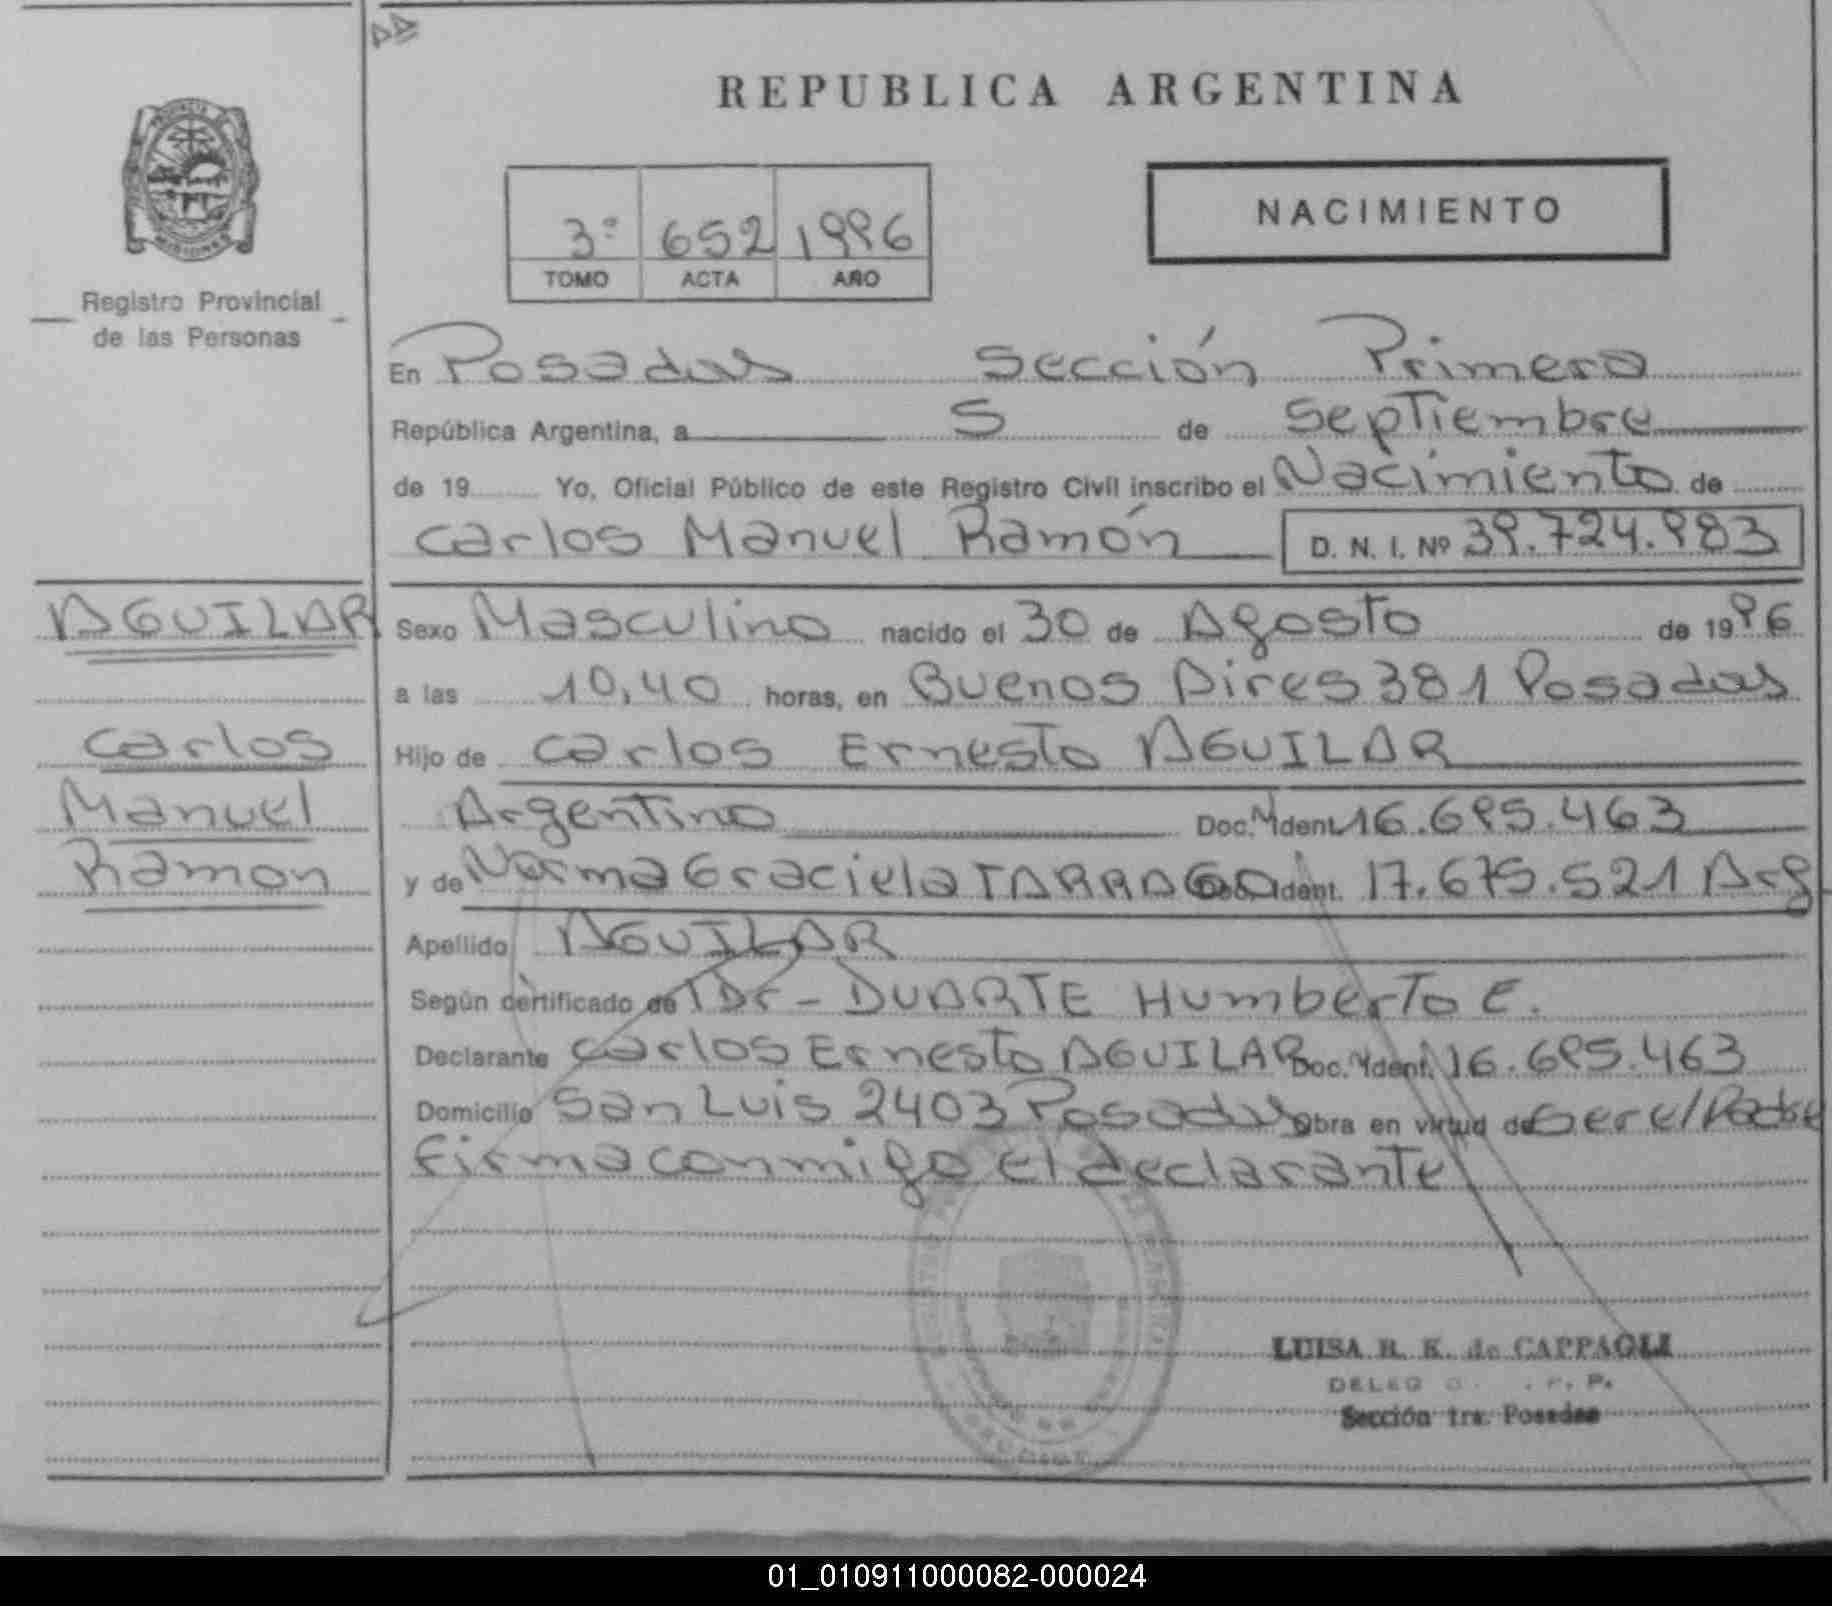 REPUBLICA ARGENTINA
NACIMIENTO
3º 652 1996
TOMO ACTA AÑO
Registro Provincial
de las Personas
En Posadas Sección Primera
República Argentina, a 5 de Septiembre
de 19 Yo, Oficial Público de este Registro Civil inscribo el Nacimiento de
Carlos Manuel Ramón D. N. I. Nº 39.724.983
AGUILAR
Carlos
Manuel
Ramon
Sexo Masculino nacido el 30 de Agosto de 1996
a las 10,40 horas, en Buenos Aires 381 Posadas
Hijo de Carlos Ernesto AGUILAR
Argentino Doc. Ident. 16.695.463
y de Norma Graciela TARRAGO Ident. 17.675.521 Arg
Apellido AGUILAR
Según certificado de Dr - DUARTE Humberto E.
Declarante Carlos Ernesto AGUILAR Doc. Ident. 16.695.463
Domicilio San Luis 2403 Posadas Obra en virtud de Ser el Padre
Firma conmigo el declarante
LUISA R. K. de CAPPAGLI
Sección 1ra. Posadas
01_010911000082-000024